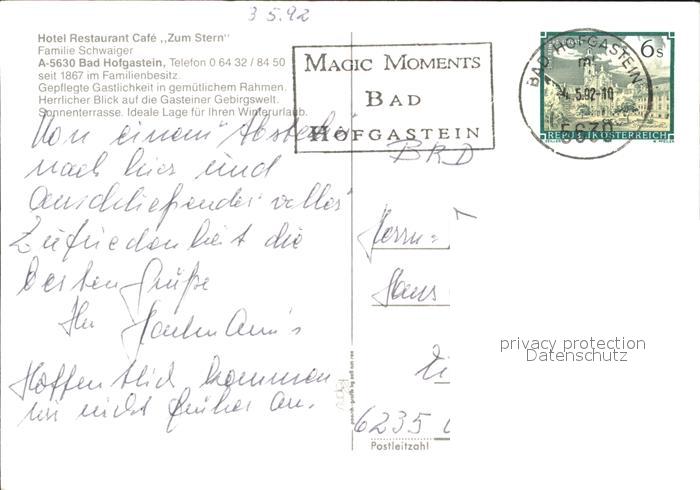 3.5.92
Hotel Restaurant Café „Zum Stern“
Familie Schwaiger
A-5630 Bad Hofgastein, Telefon 0 64 32 / 84 50
seit 1867 im Familienbesitz.
Gepflegte Gastlichkeit in gemütlichem Rahmen.
Herrlicher Blick auf die Gasteiner Gebirgswelt.
Sonnenterrasse. Ideale Lage für Ihren Winterurlaub.
MAGIC MOMENTS
BAD
HOFGASTEIN
BAD HOFGASTEIN
-4. 5.92-10
5630
6s
REPUBLIK ÖSTERREICH
Von einem
nach hier und
anschließender voller
Zufriedenheit die
besten Grüße
Ihr
Hoffentlich kommen
wir nicht früher an.
BRD
Herrn
Hans
6235
Postleitzahl
privacy protection
Datenschutz